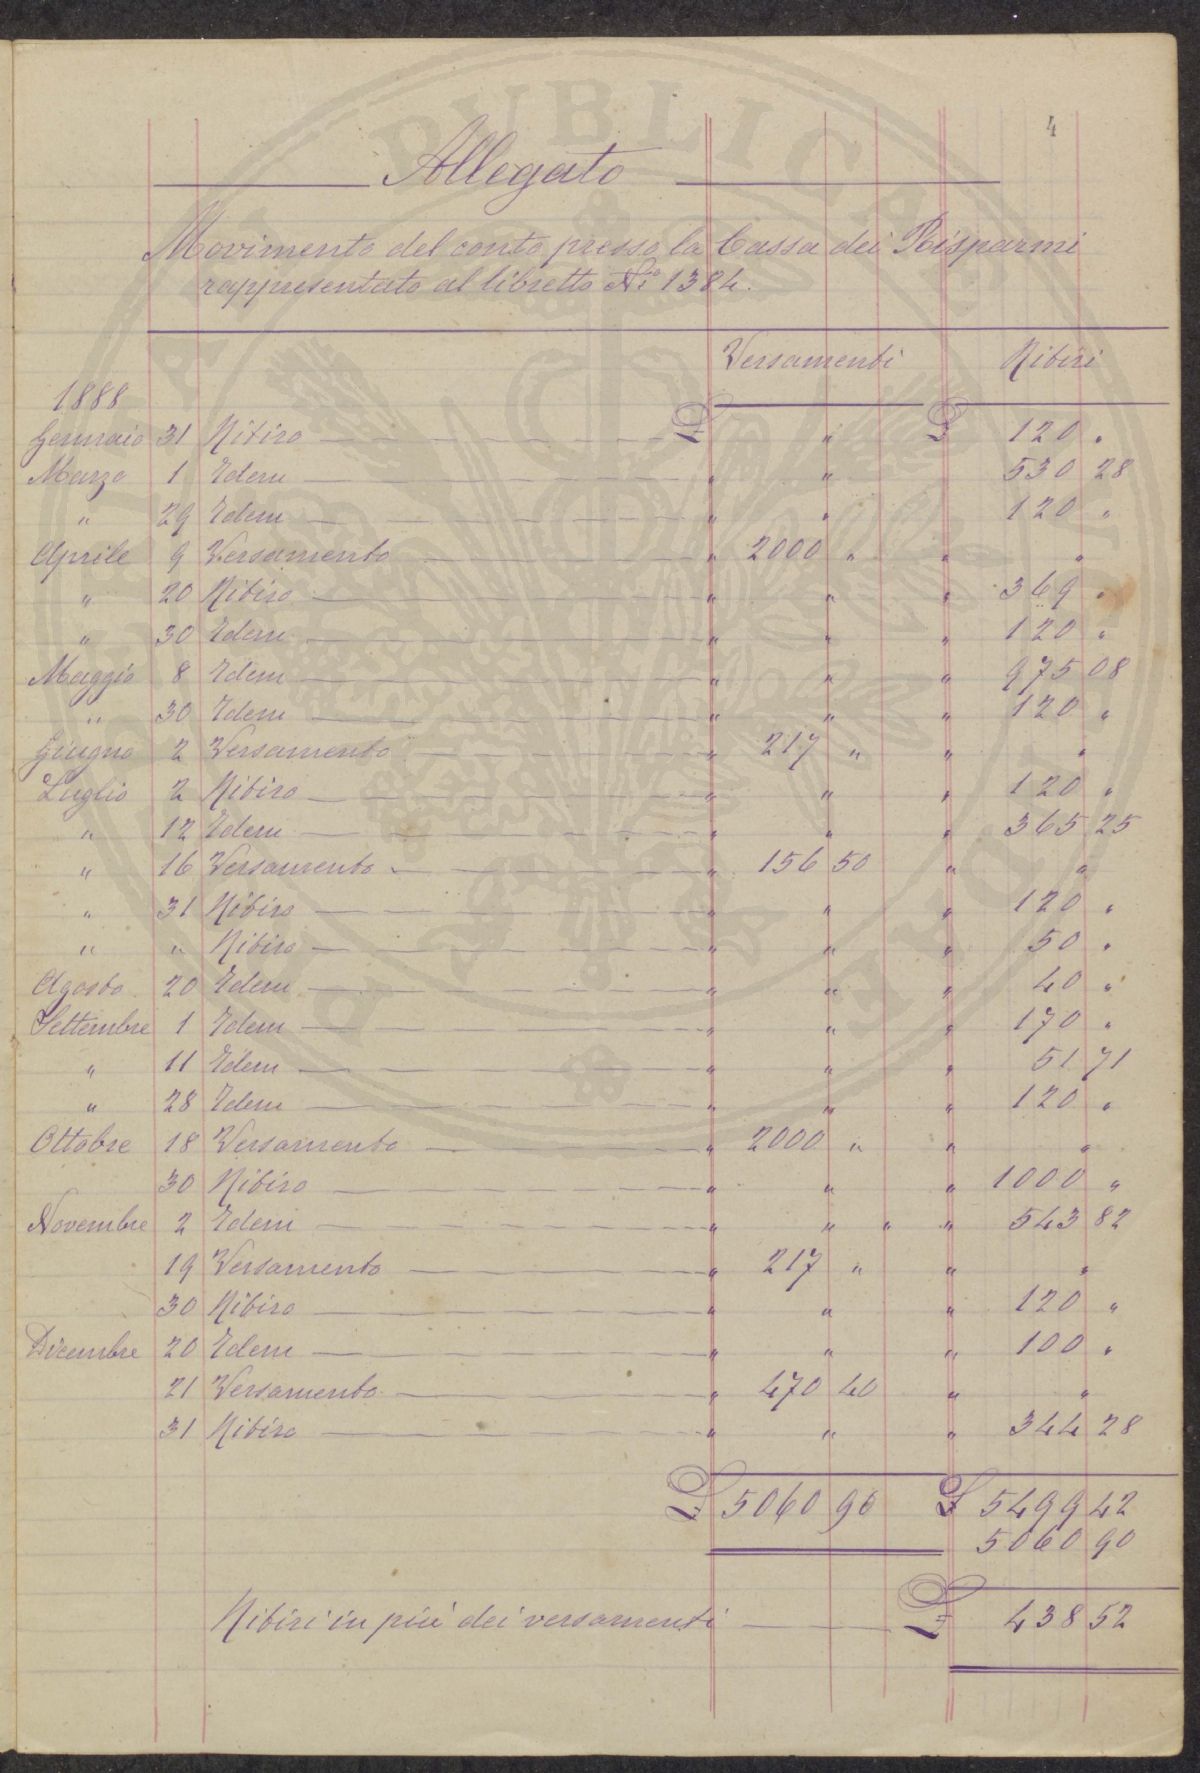 4
Allegato
Movimento del conto presso la Cassa dei Risparmi
rappresentato al libretto No 1384.
Versamenti Ritiri
1888
Gennaio 31 Ritiro £ " £ 120 "
Marzo 1 Idem " " 530 28
" 29 Idem " " 120 "
Aprile 9 Versamento " 2000 " " "
" 20 Ritiro " " " 369 "
" 30 Idem " " " 120 "
Maggio 8 Idem " " " 975 08
" 30 Idem " " " 120 "
Giugno 2 Versamento " 217 " " "
Luglio 2 Ritiro " " " 120 "
" 12 Idem " " " 365 25
" 16 Versamento " 156 50 " "
" 31 Ritiro " " " 120 "
" " Ritiro " " " 50 "
Agosto 20 Idem " " " 40 "
Settembre 1 Idem " " " 170 "
" 11 Idem " " " 51 71
" 28 Idem " " " 120 "
Ottobre 18 Versamento " 2000 " " "
30 Ritiro " " " 1000 "
Novembre 2 Idem " " " " 543 82
19 Versamento " 217 " " "
30 Ritiro " " " 120 "
Dicembre 20 Idem " " " 100 "
21 Versamento " 470 40 " "
31 Ritiro " " " 344 28
£ 5060 90 £ 5499 42
5060 90
Ritiri in più dei versamenti £ 438 52